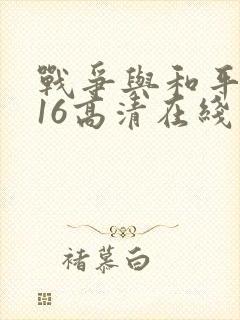 戰爭與和平
16高清在綫
褚慕白